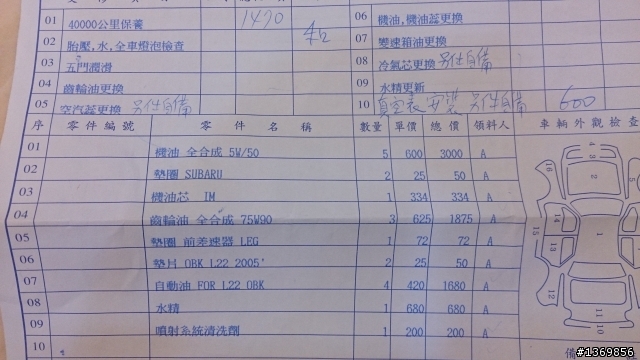 01 40000公里保養 1490
02 胎壓,水,全車燈泡檢查
03 五門潤滑
04 齒輪油更換
05 空汽蕊更換 另件自備
06 機油,機油蕊更換
07 變速箱油更換
08 冷氣芯更換 另件自備
09 水精更新
10 真空表安裝 另件自備 600
序 零件編號 零件名稱 數量 單價 總價 領料人 車輛外觀檢查
01 機油 全合成 5W/50 5 600 3000 A
02 墊圈 SUBARU 2 25 50 A
03 機油芯 IM 1 334 334 A
04 齒輪油 全合成 75W90 3 625 1875 A
05 墊圈 前差速器 LEG 1 72 72 A
06 墊片 OBK L22 2005' 2 25 50 A
07 自動油 FOR L22 OBK 4 420 1680 A
08 水精 1 680 680 A
09 噴射系統清洗劑 1 200 200 A
10
#1369856